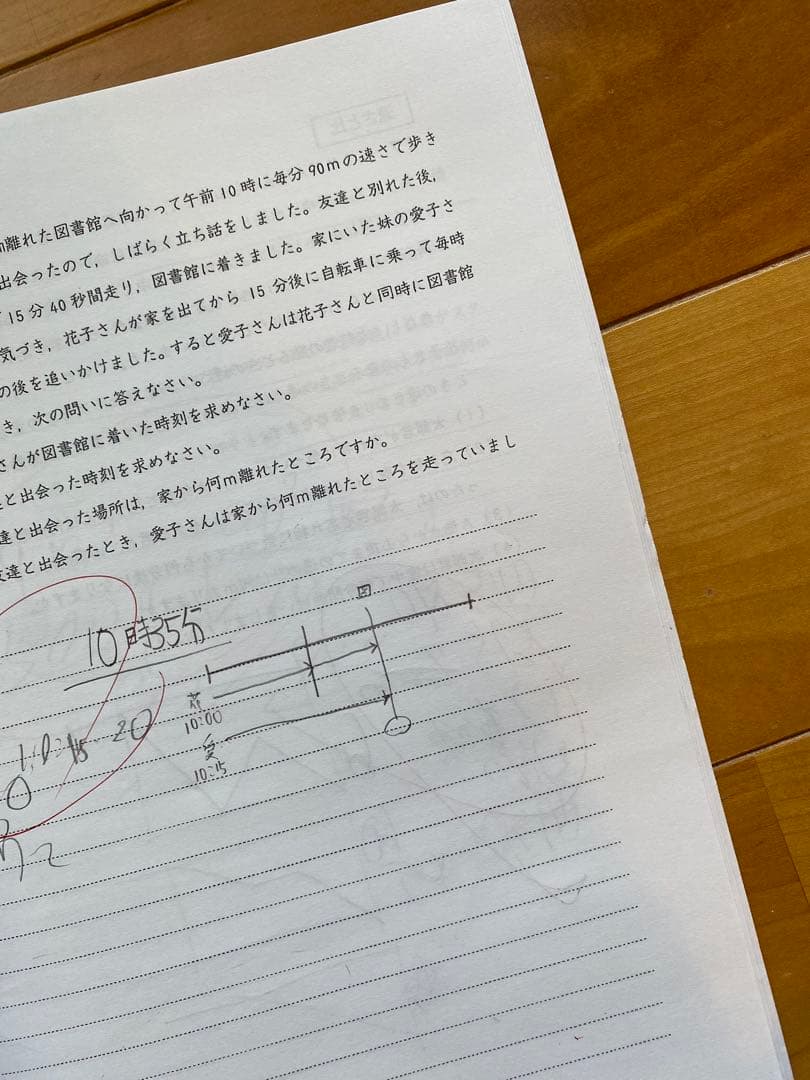 離れた図書館へ向かって午前10時に毎分90mの速さで歩き
出会ったので，しばらく立ち話をしました。友達と別れた後，
15分40秒間走り，図書館に着きました。家にいた妹の愛子さ
気づき，花子さんが家を出てから15分後に自転車に乗って毎時
の後を追いかけました。すると愛子さんは花子さんと同時に図書館
き，次の問いに答えなさい。
さんが図書館に着いた時刻を求めなさい。
と出会った時刻を求めなさい。
達と出会った場所は，家から何m離れたところですか。
友達と出会ったとき，愛子さんは家から何m離れたところを走っていまし
10時35分
図
花
10:00
愛
10:15
20